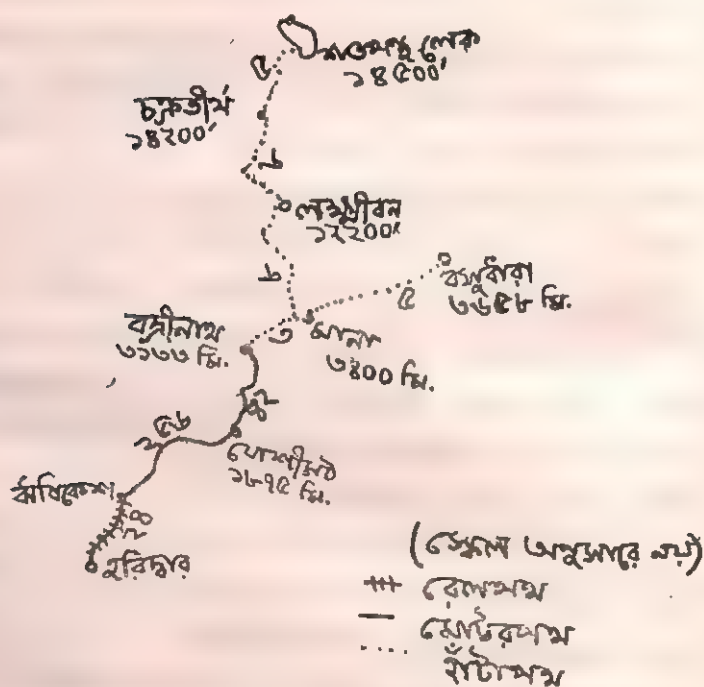 শতপন্থ লেক
১৪৫০০′
৫
চক্রতীর্থ
১৪২০০′
৮
লক্ষ্মীবন
১২২০০′
৮
বসুধারা
৩৬৫৮ মি.
৫
বদ্রীনাথ
৩১৩৩ মি.
৩
মানা
৩৪০০ মি.
যোশীমঠ
১৮৭৫ মি.
২৫৬
ঋষিকেশ
হরিদ্বার
(স্কেল অনুসারে নয়)
রেলপথ
মোটরপথ
হাঁটাপথ